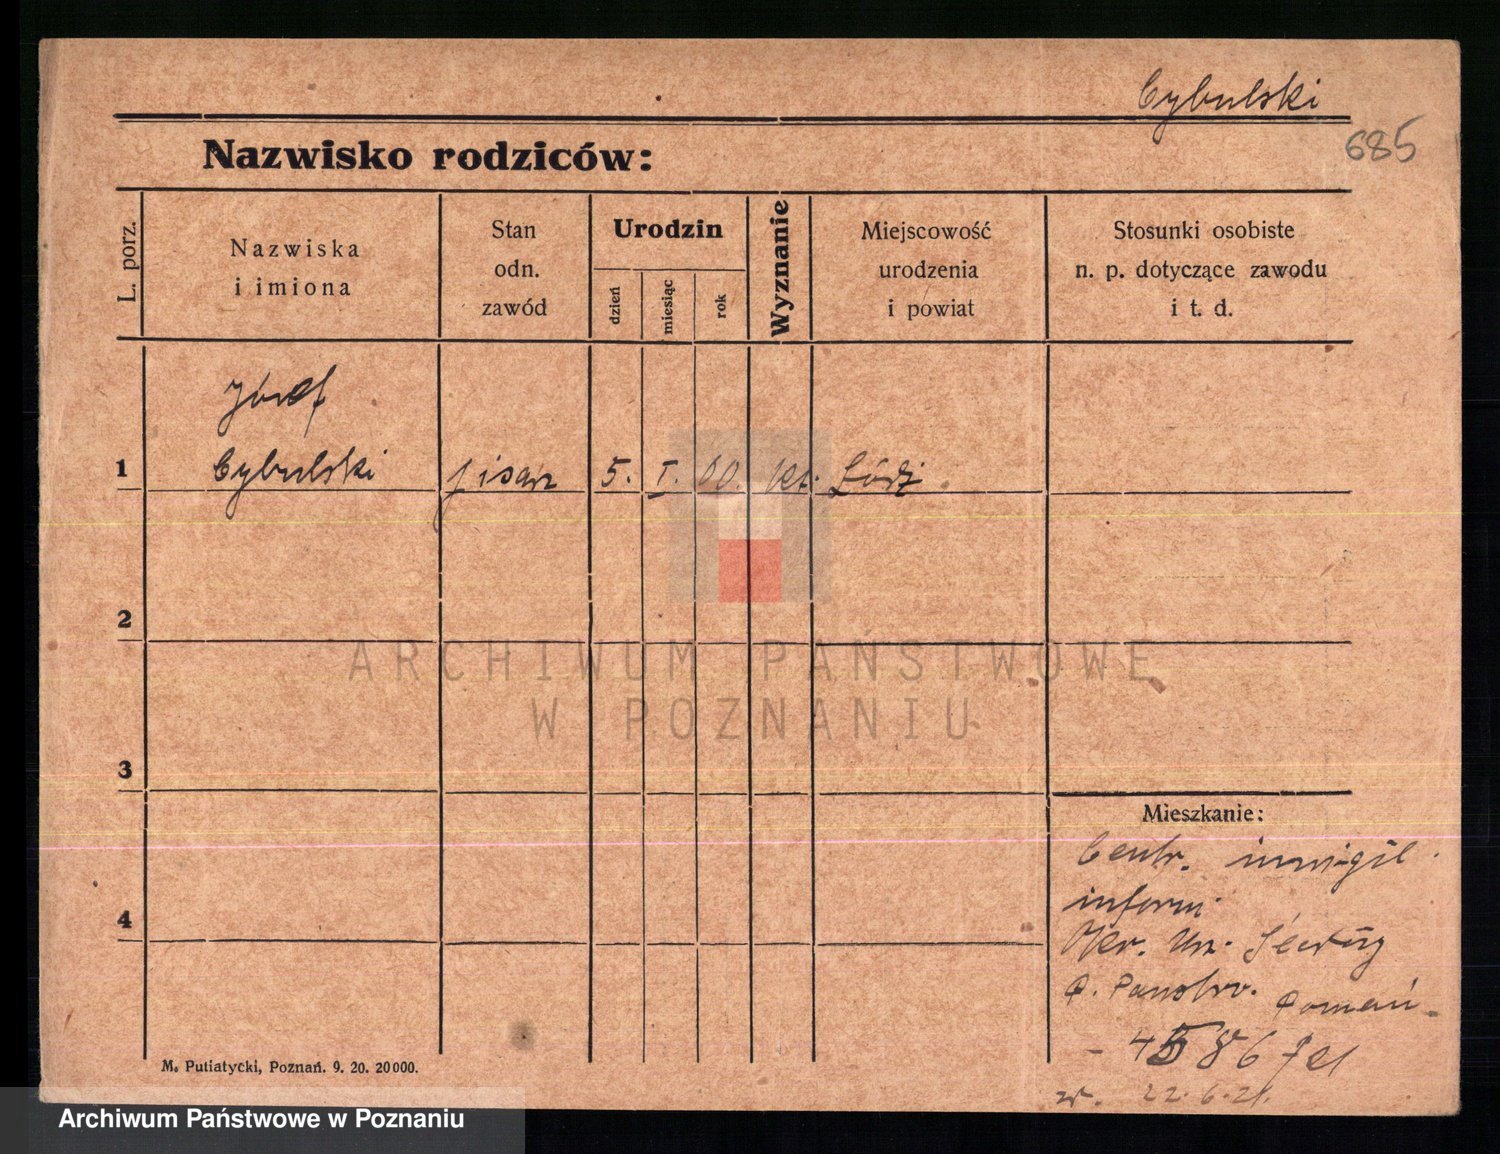 Cybulski
685
Nazwisko rodziców:
L. porz.
Nazwiska
i imiona
Stan
odn.
zawód
Urodzin
dzień
miesiąc
rok
Wyznanie
Miejscowość
urodzenia
i powiat
Stosunki osobiste
n. p. dotyczące zawodu
i t. d.
Józef
1 Cybulski pisarz 5. I. 00. kt. Łódź
2
ARCHIWUM PAŃSTWOWE
W POZNANIU
3
Mieszkanie:
Centr. inwigil.
inform.
4
Okr. Urz. Śledczy
P. Państw. Poznań
- 4586 Jei
w. 22.6.21.
M. Putiatycki, Poznań. 9. 20. 20000.
Archiwum Państwowe w Poznaniu